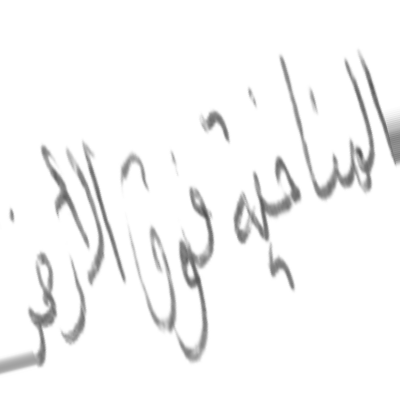 المناخية فوق الأرض